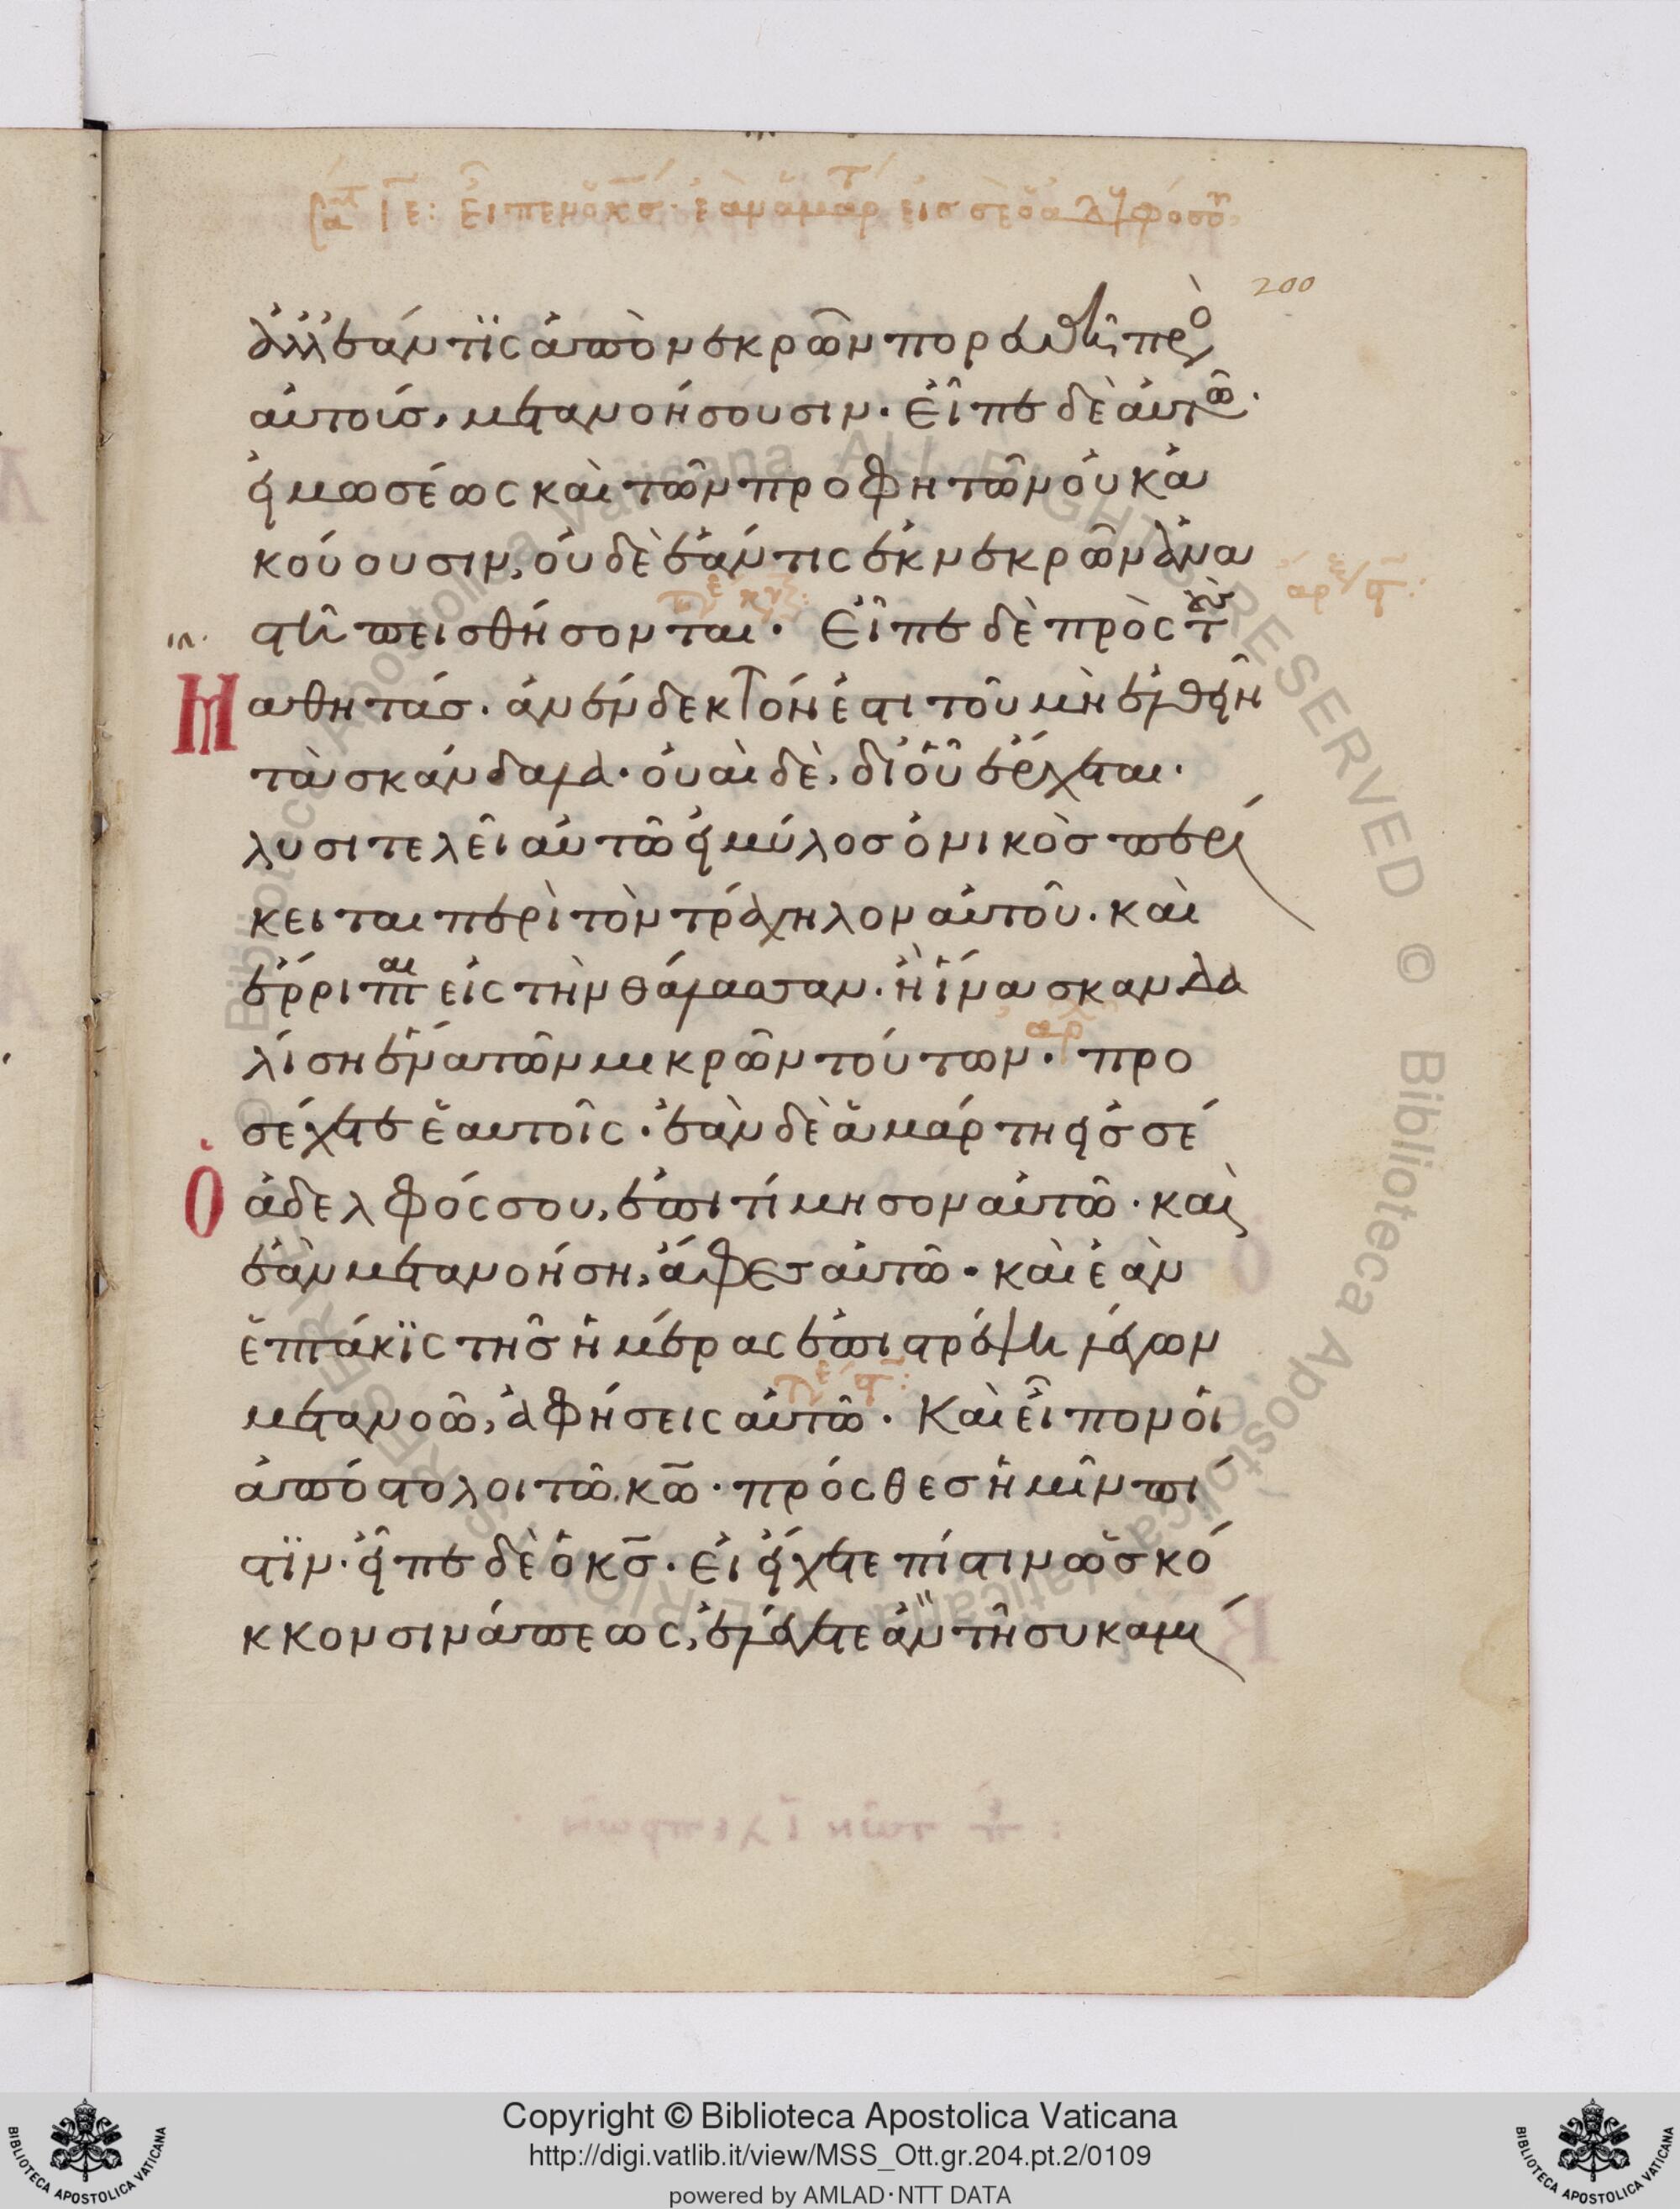 ἀλλ' ἐάν τϊς ἀπὸ νεκρῶν πορευθῆ πρὸ
αὐτούς, μετανοήσουσιν. Εἶπε δὲ αὐτῶ.
εἰ μωσέως καὶ τῶν προφητῶν οὐκ ἀ
κούουσιν, οὐδὲ ἐάν τις ἐκ νεκρῶν ἀνα
στῆ πεισθήσονται. Εἶπε δὲ πρὸς τοὺς
Μαθητάς. ἀνένδεκτόν ἐστι τοῦ μὴ ἐλθεῖν
τὰ σκάνδαλα. οὐαὶ δὲ, δι' οὗ ἔρχεται.
λυσιτελεῖ αὐτῶ εἰ μύλος ὀνικὸς περί
κειται περὶ τὸν τράχηλον αὐτοῦ. καὶ
ἔρριπται εἰς τὴν θάλασσαν. ἢ ἵνα σκανδα
λίση ἕνα τῶν μικρῶν τούτων. προ
σέχετε ἑαυτοῖς. ἐὰν δὲ ἁμάρτη εἰς σέ
Ὁ ἀδελφός σου, ἐπιτίμησον αὐτῶ. καὶ
ἐὰν μετανοήση, ἄφες αὐτῶ. καὶ ἐὰν
ἑπτάκϊς τῆς ἡμέρας ἐπιστρέψη λέγων
μετανοῶ, ἀφήσεις αὐτῶ. Καὶ εἶπον οἱ
ἀπόστολοι τῶ κ̅ω̅. πρόσθες ἡμῖν πί
στϊν. εἶπε δὲ ὁ κ̅ς̅. εἰ εἴχετε πίστιν ὡς κό
κκον σινάπεως, ἐλέγετε ἂν τῆ συκαμί
200
Copyright © Biblioteca Apostolica Vaticana
http://digi.vatlib.it/view/MSS_Ott.gr.204.pt.2/0109
powered by AMLAD·NTT DATA
BIBLIOTECA APOSTOLICA VATICANA
BIBLIOTECA APOSTOLICA VATICANA